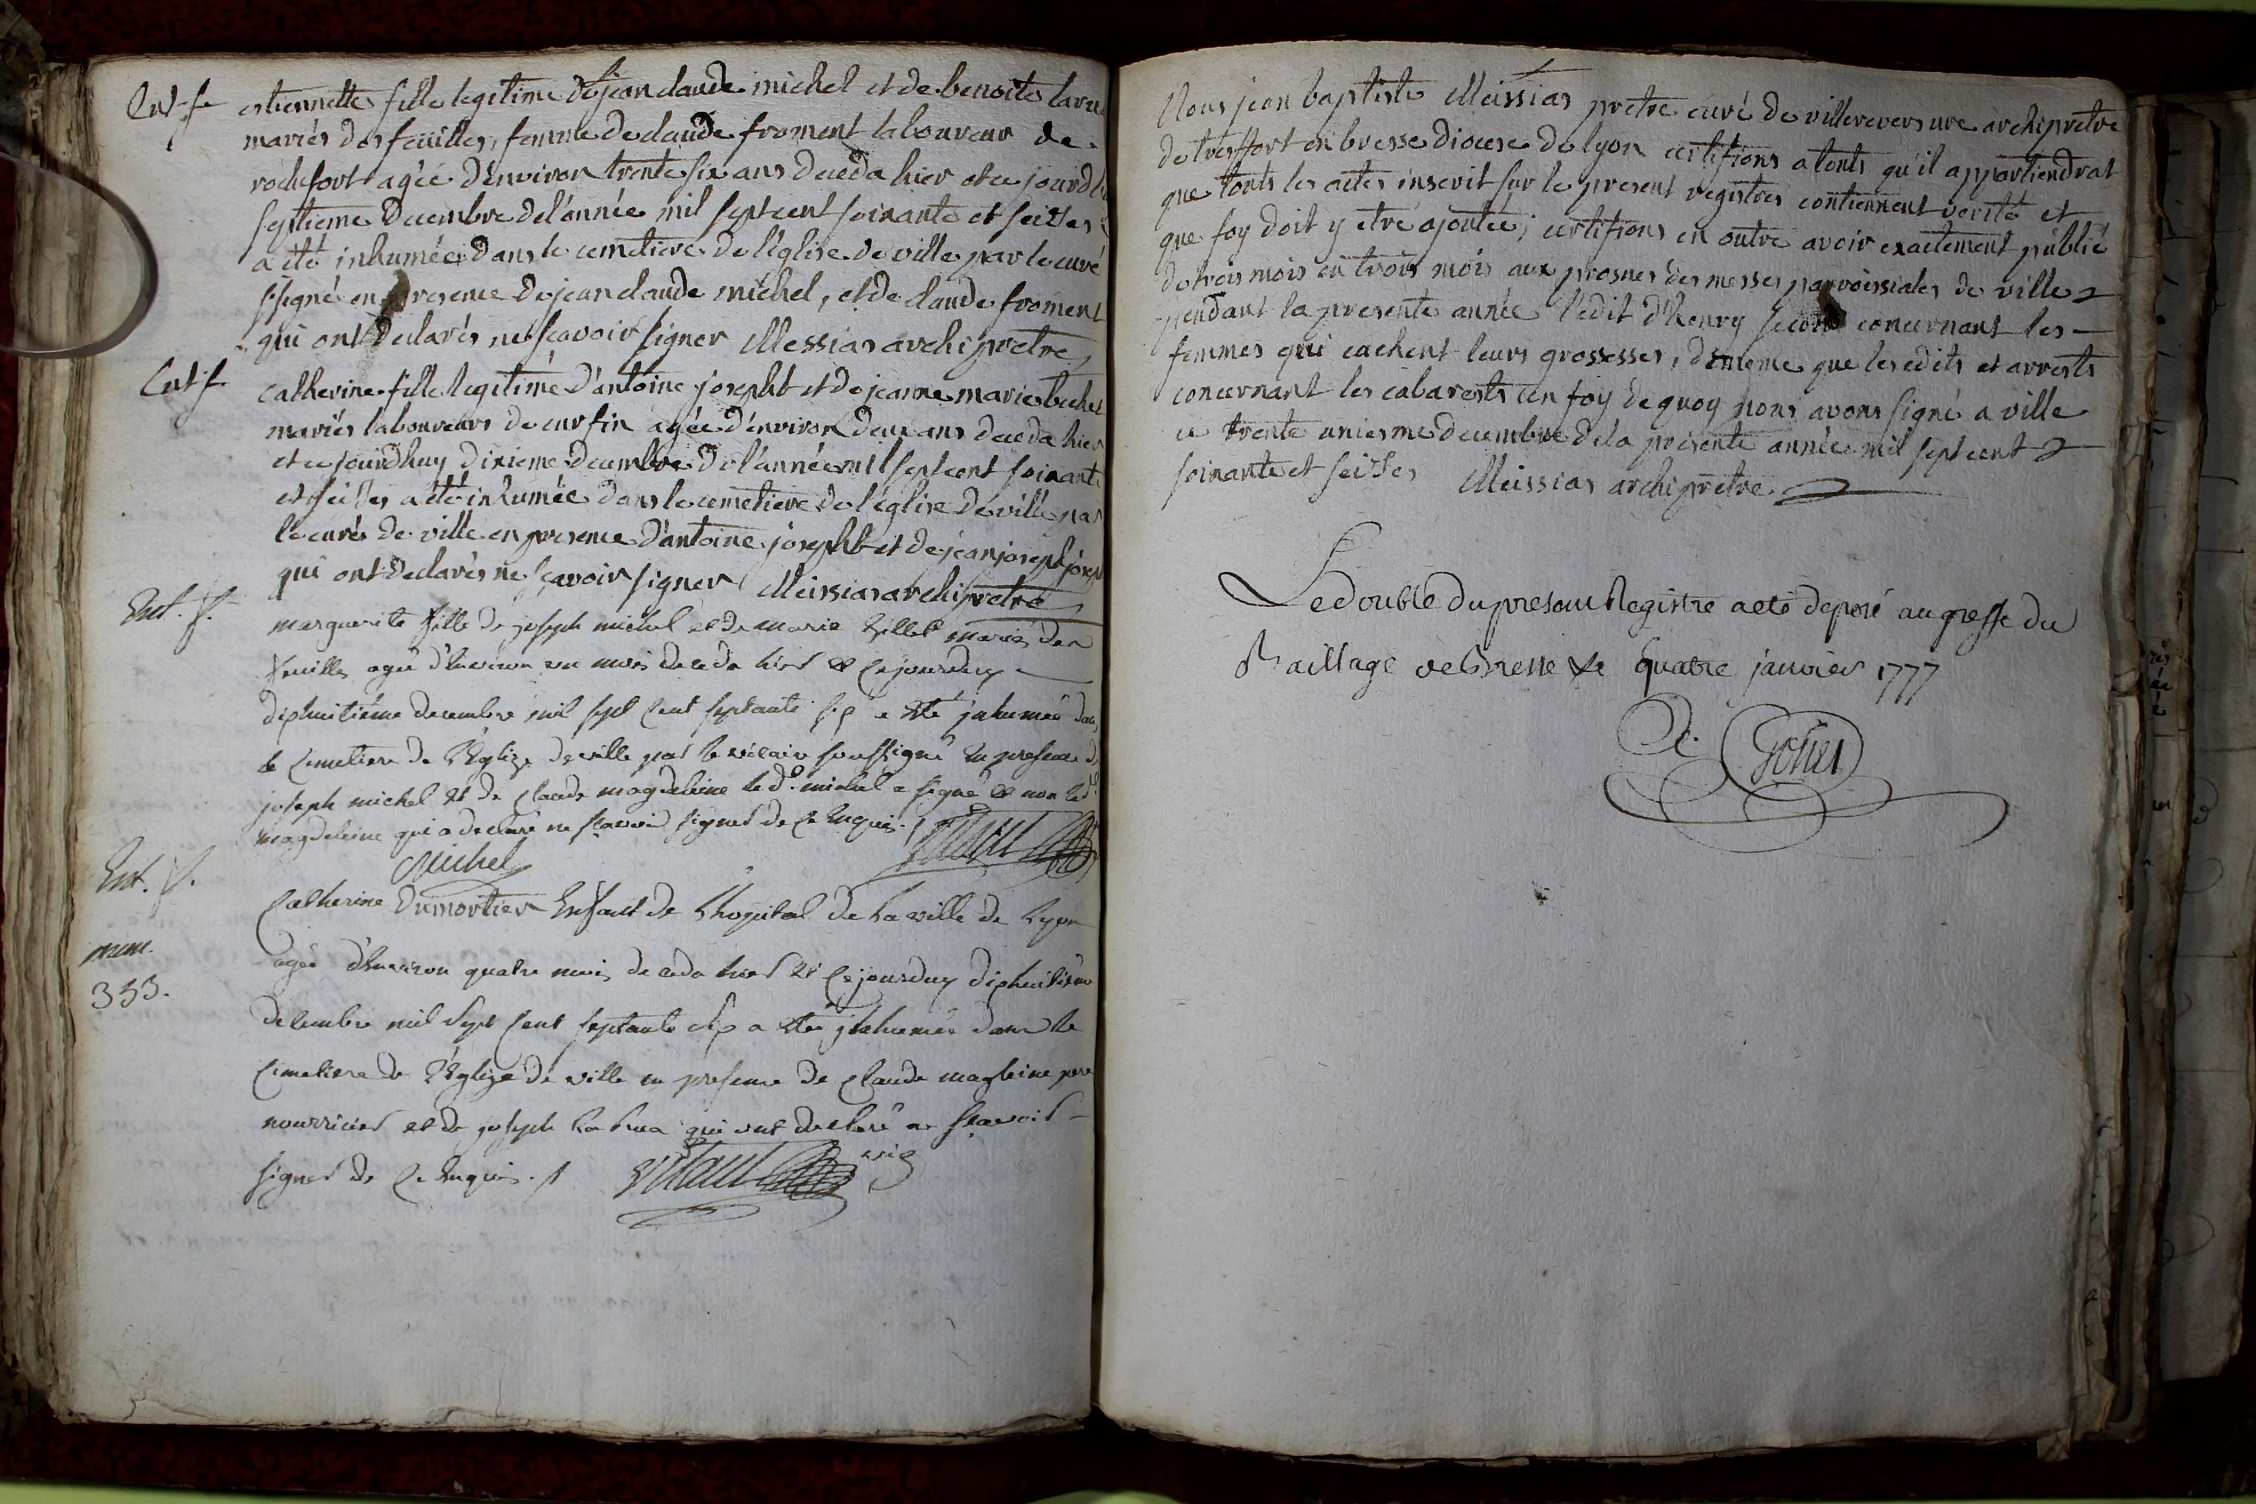 Ent. f.
estiennette fille legitime de jean claude michel et de benoite larue
mariés des feuilles, femme de claude froment laboureur de
rochefort agée d'environ trente six ans deceda hier et ce jourdh
septieme decembre de l'année mil sept cent soixante et seizes
a été inhumée dans le cemetiere de l'église de ville par le curé
ssigné en presence de jean claude michel, et de claude froment
qui ont declarés ne scavoir signer Messias archipretre
Ent. f.
catherine fille legitime d'antoine josepht et de jeanne marie bechet
mariés laboureurs de curfin agée d'environ deux ans deceda hier
et ce jourdhuy dixieme decembre de l'année mil sept cent soixante
et seizes a été inhumée dans le cemetiere de l'église de ville par
le curés de ville en presence d'antoine josepht et de jean joseph joseph
qui ont declarés ne sçavoir signer Meissias archipretre
Ent. f.
marguerite fille de joseph michel et de marie tillet mariés des
feuilles agée d'environ un mois deceda hier et ce jourduy
dixhuitième decembre mil sept cent septante six a été inhumée dans
le cimetiere de l'Eglize de ville par le vicaire soussigné en presence de
joseph michel et de claude magdeleine le d. michel a signé et non le d.
magdeleine qui a declaré ne scavoir signer de ce enquis.
Michel
Ent. f.
Catherine Dumortier Enfant de l'hopital de la ville de Lyon
agée d'environ quatre mois deceda hier et ce jourduy dixhuitième
num.
decembre mil sept cent septante six a été inhumée dans le
353.
cimetiere de l'Eglize de ville en presence de claude magleine pere
nourricier et de joseph la rua qui ont declaré ne scavoir
signer de ce enquis. vic
Nous jean baptiste Meissias pretre curé de villereversure archipretre
de tresffort en bresse diocese de lyon certifions a touts qu'il appartiendrat
que touts les actes inscrit sur le present registres contiennent verité et
que foy doit y etre ajoutée; certifions en outre avoir exactement publié
de trois mois en trois mois aux prosnes des messes parroissiales de ville
pendant la presente année l'edit d'henry second concernant les
femmes qui cachent leurs grossesses, de meme que les edits et arrests
concernant les cabarests en foy de quoy nous avons signé a ville
ce trente uniesme decembre de la presente année mil sept cent
soixante et seizes Meissias archipretre.
Le double du present Registre a eté deposé au greffe du
Baillage de Bresse le quatre janvier 1777